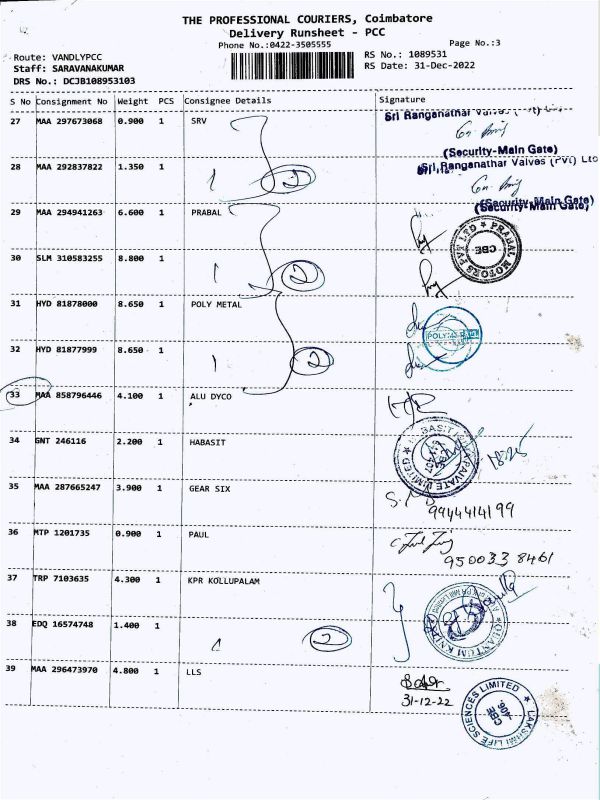 THE PROFESSIONAL COURIERS, Coimbatore
Delivery Runsheet - PCC
Phone No.:0422-3505555
Page No.:3
Route: VANDLYPCC
RS No.: 1089531
Staff: SARAVANAKUMAR
RS Date: 31-Dec-2022
DRS No.: DCJB108953103
S No Consignment No Weight PCS Consignee Details Signature
27 MAA 297673068 0.900 1 SRV
Sri Ranganathar Valves
(Security-Main Gate)
28 MAA 292837822 1.350 1 1 2
Sri Ranganathar Valves (PVt) Ltd
(Security-Main Gate)
(Security-Main Gate)
29 MAA 294941263 6.600 1 PRABAL
PRABAL MOTORS PVT LTD
CBE
30 SLM 310583255 8.800 1 1 2
31 HYD 81878000 8.650 1 POLY METAL
POLY
32 HYD 81877999 8.650 1 1 2
33 MAA 858796446 4.100 1 ALU DYCO
34 GNT 246116 2.200 1 HABASIT
HABASIT PRIVATE LIMITED
35 MAA 287665247 3.900 1 GEAR SIX
9944414199
36 MTP 1201735 0.900 1 PAUL
950033 8461
37 TRP 7103635 4.300 1 KPR KOLLUPALAM
QUANTUM KNITS
38 EDQ 16574748 1.400 1 1 2
39 MAA 296473970 4.800 1 LLS
31-12-22
LAKSHMI LIFE SCIENCES LIMITED
CBE